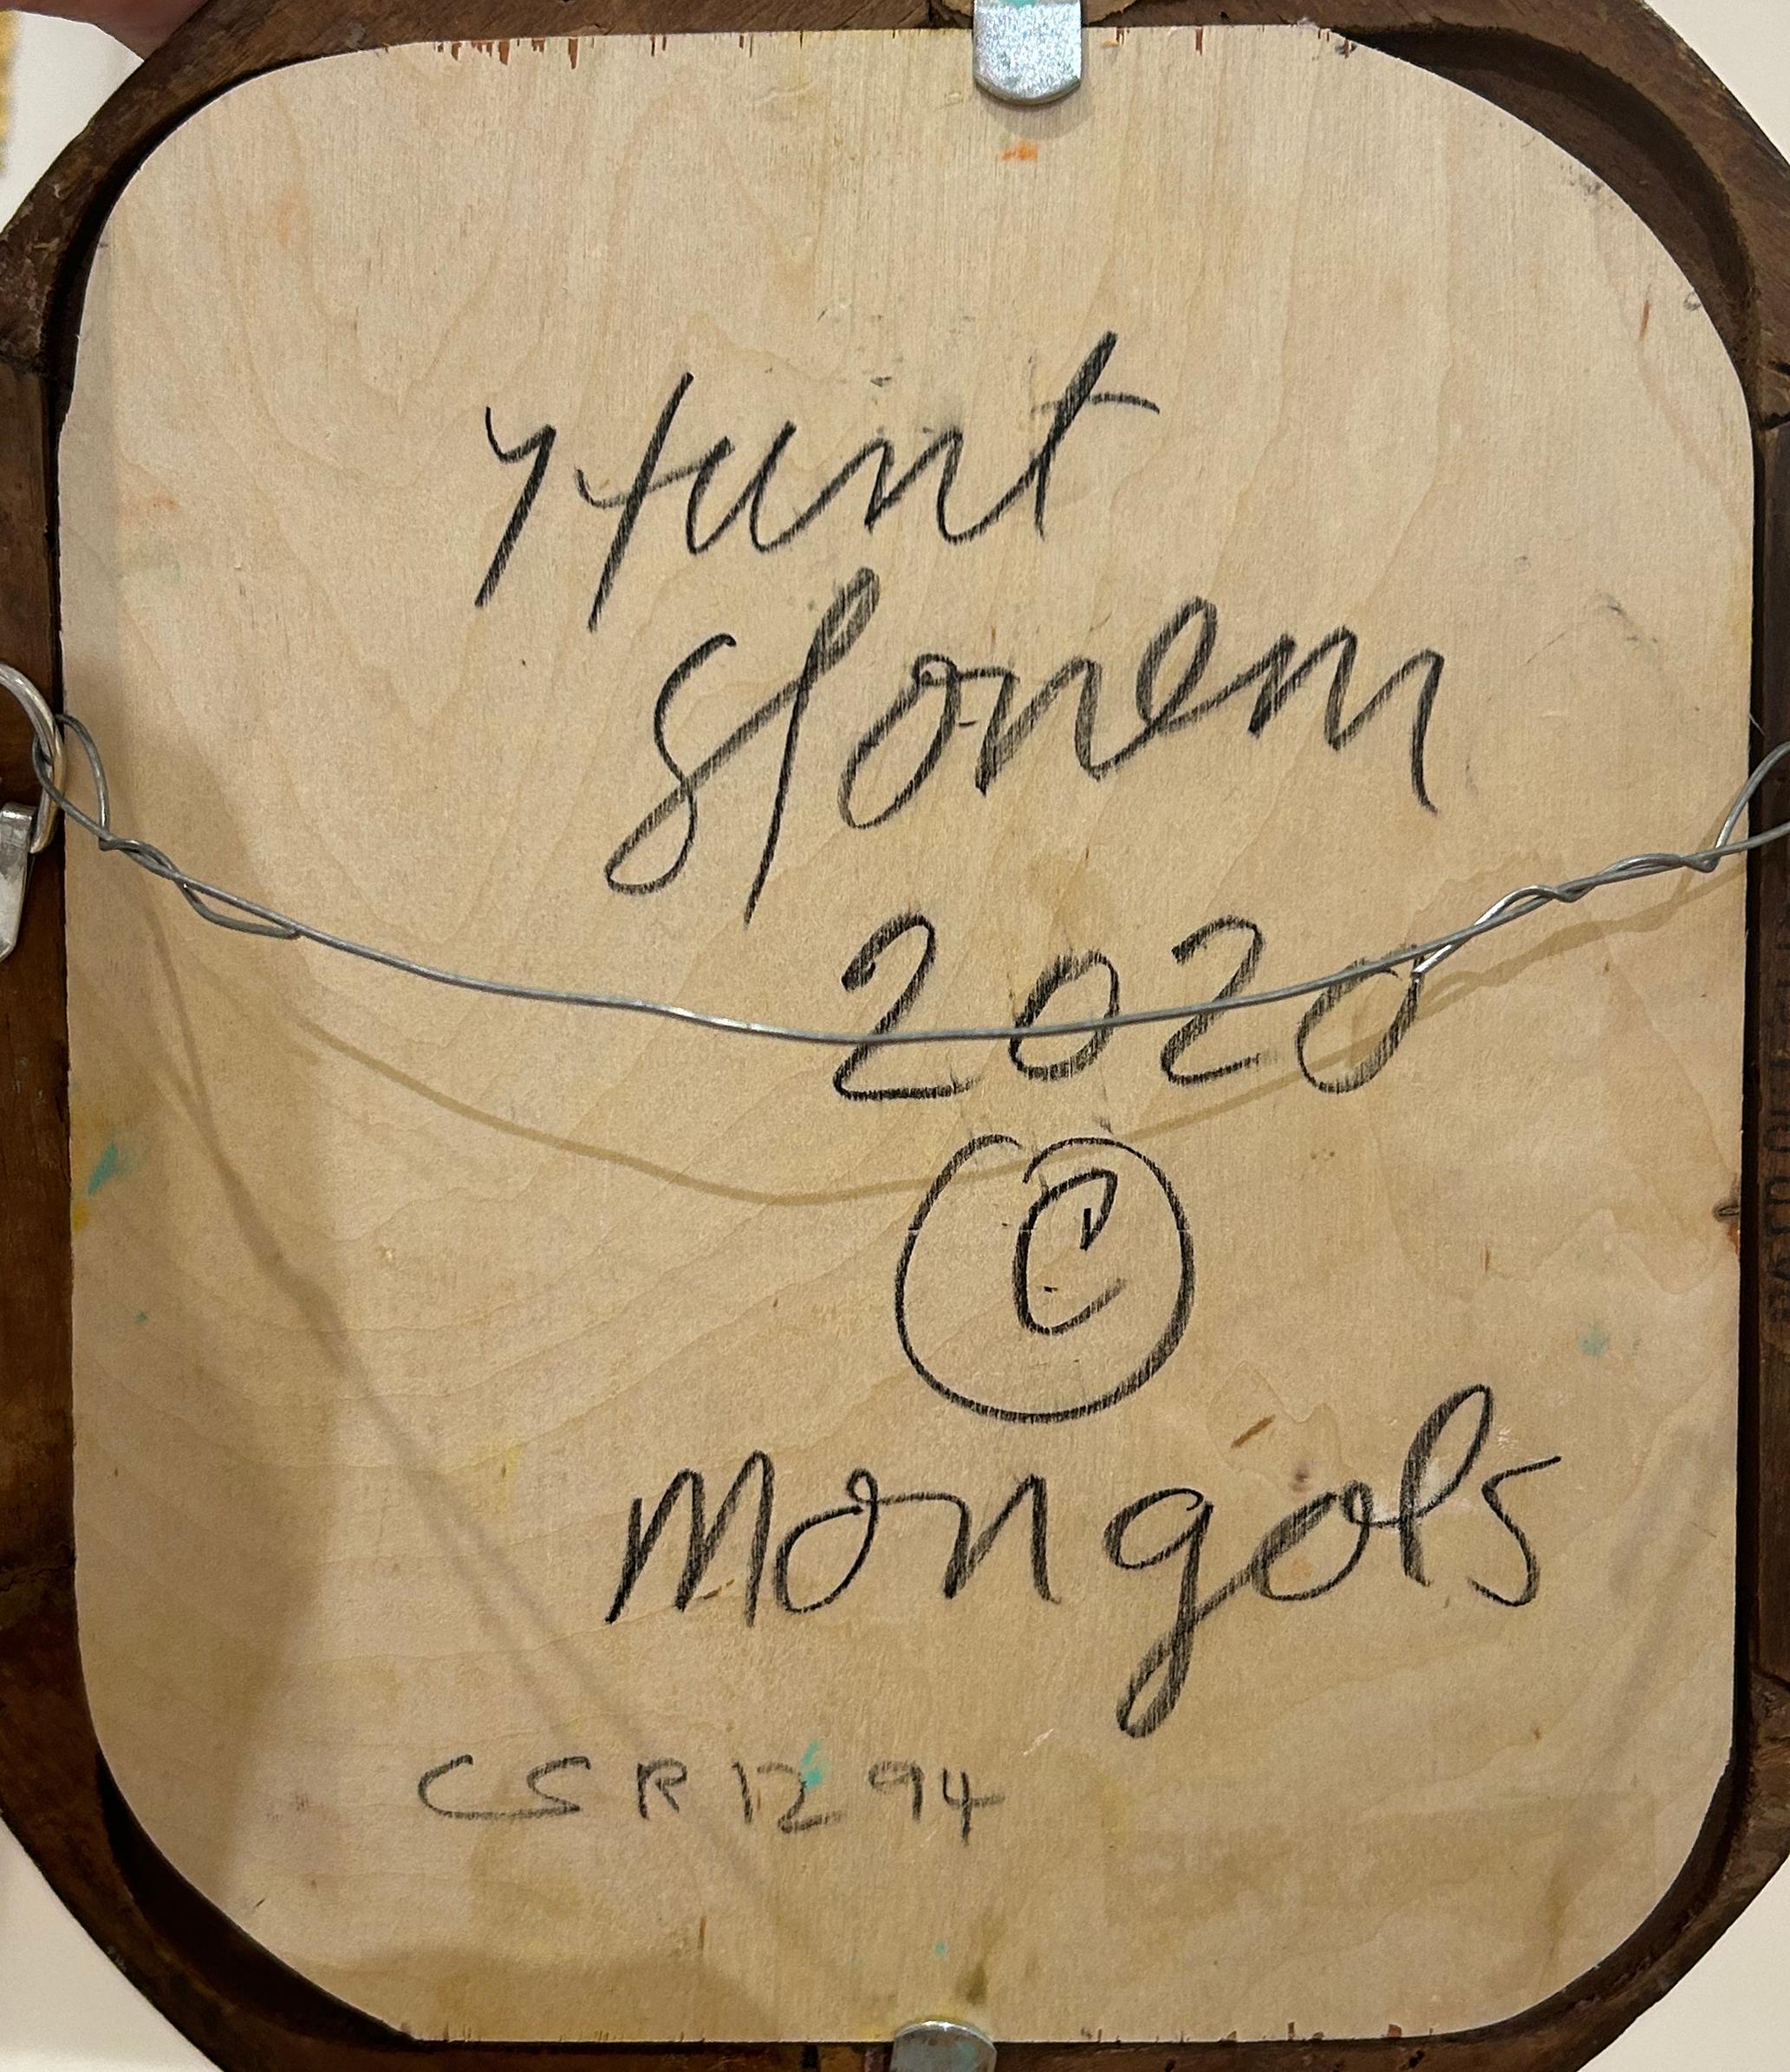 Hunt
Slonem
2020
©
Mongols
CSR1294